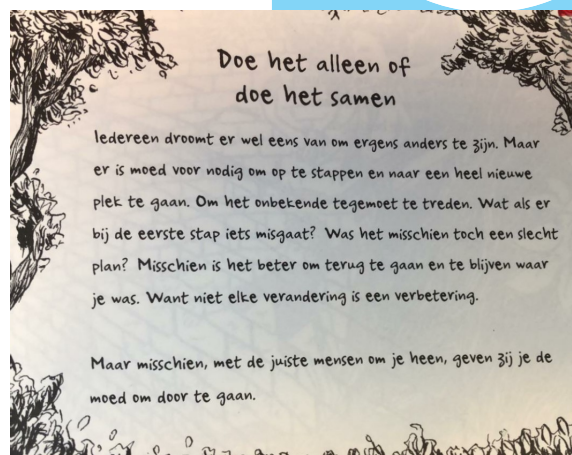 Doe het alleen of
doe het samen
Iedereen droomt er wel eens van om ergens anders te zijn. Maar
er is moed voor nodig om op te stappen en naar een heel nieuwe
plek te gaan. Om het onbekende tegemoet te treden. Wat als er
bij de eerste stap iets misgaat? Was het misschien toch een slecht
plan? Misschien is het beter om terug te gaan en te blijven waar
je was. Want niet elke verandering is een verbetering.
Maar misschien, met de juiste mensen om je heen, geven zij je de
moed om door te gaan.